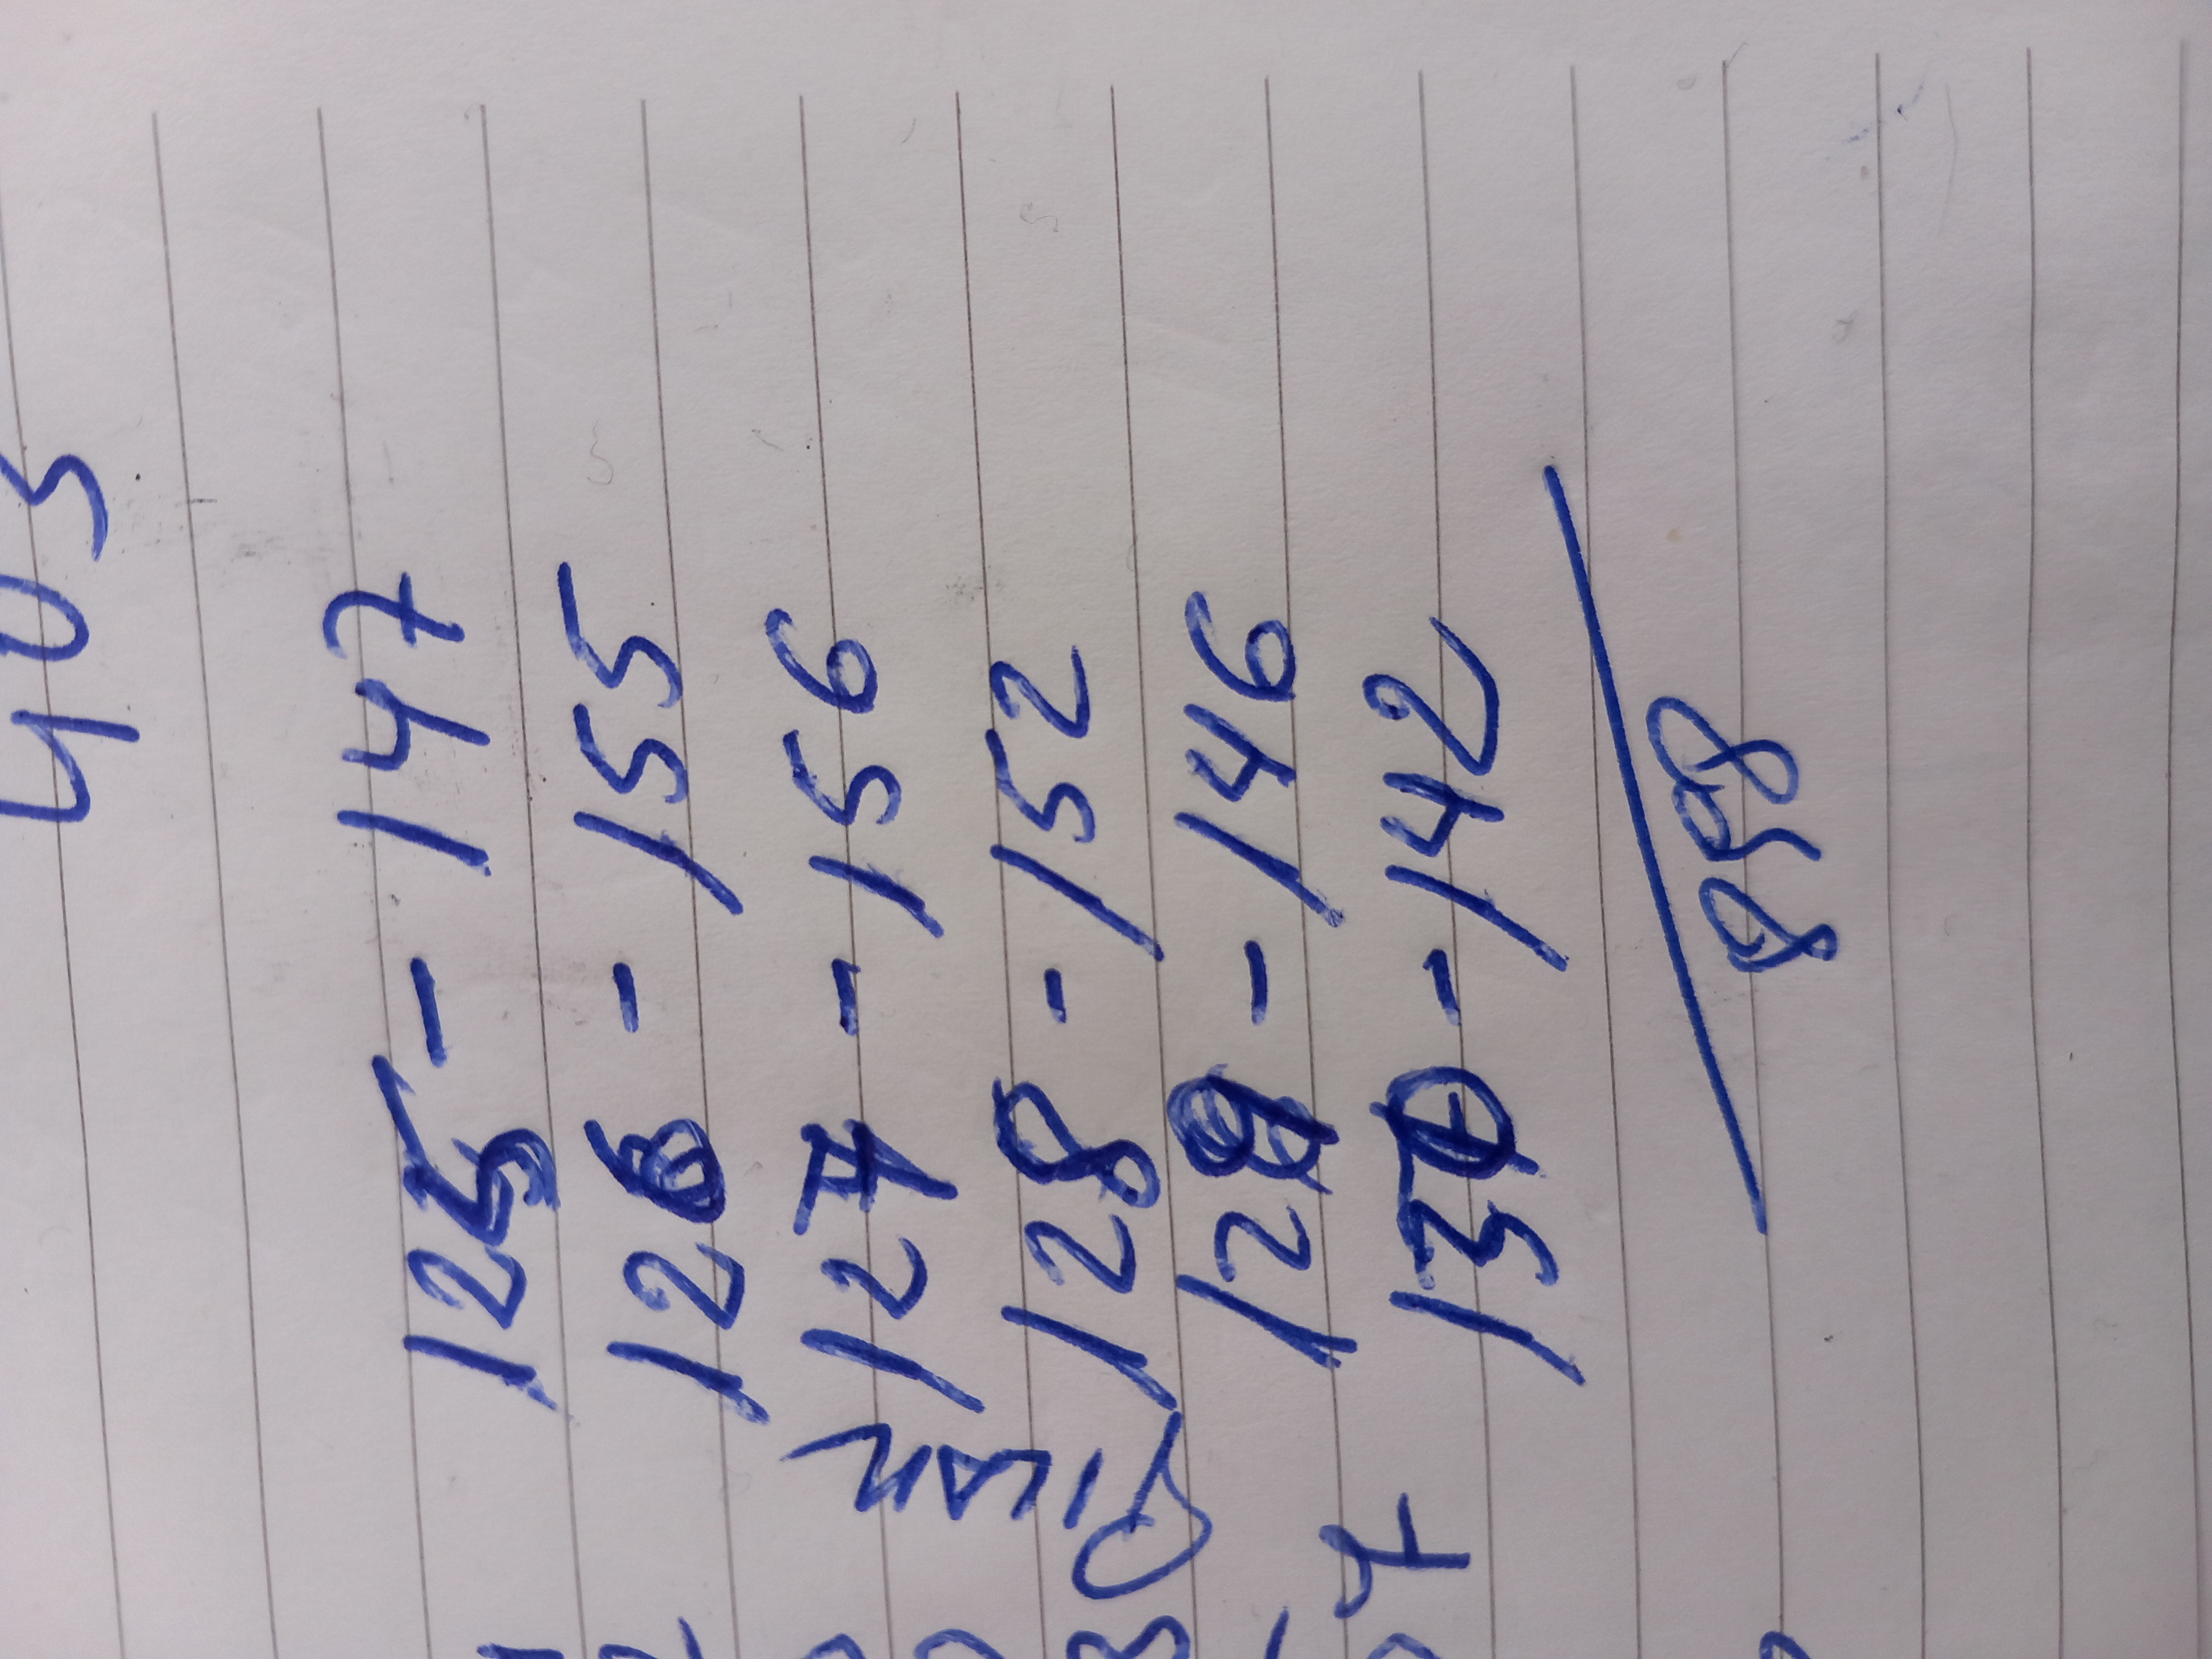 403
125 - 147
126 - 155
127 - 156
128 - 152
129 - 146
130 - 142
898